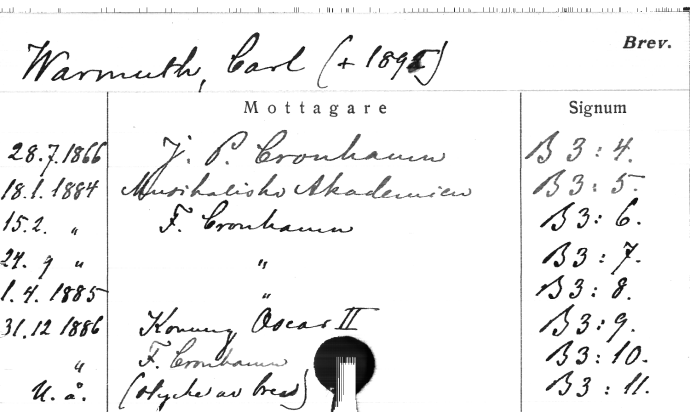 Brev.
Warmuth, Carl (+ 1895)
Mottagare Signum
28.7.1866 J. P. Cronhamn B 3 : 4.
18.1.1884 Musikaliska Akademien B 3 : 5.
15.2. " F. Cronhamn B 3 : 6.
24. 9 " " B 3 : 7.
1.4.1885 " B 3 : 8.
31.12 1886 Konung Oscar II B 3 : 9.
" F. Cronhamn B 3 : 10.
U. å. (stycke av brev) B 3 : 11.